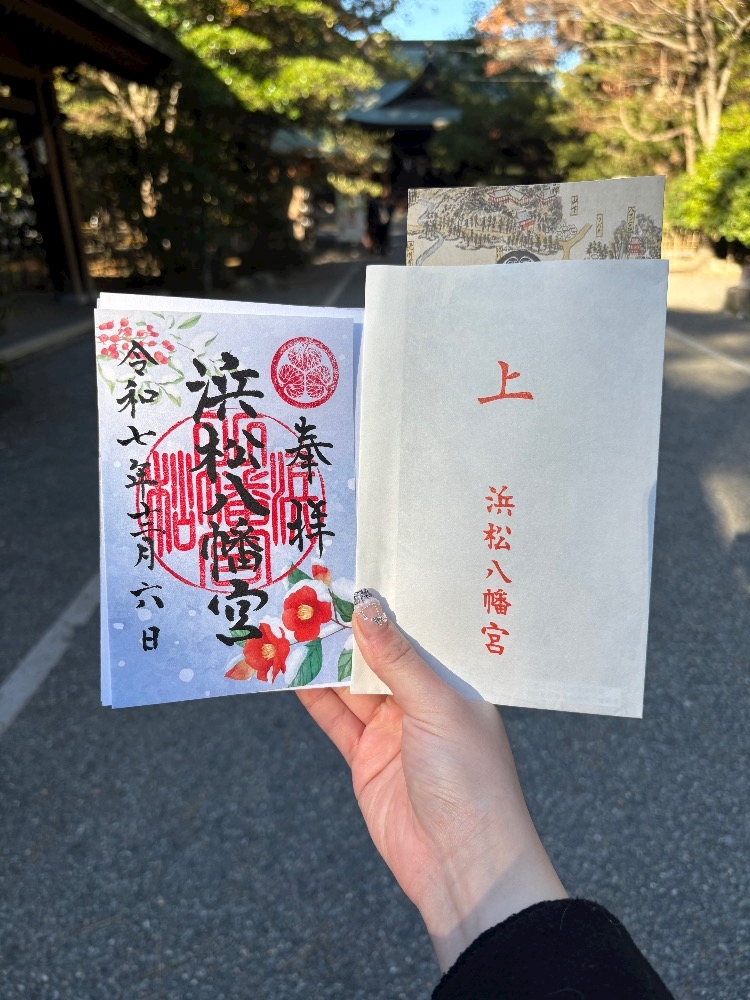 奉拝
浜松八幡宮
令和七年十二月六日
上
浜松八幡宮